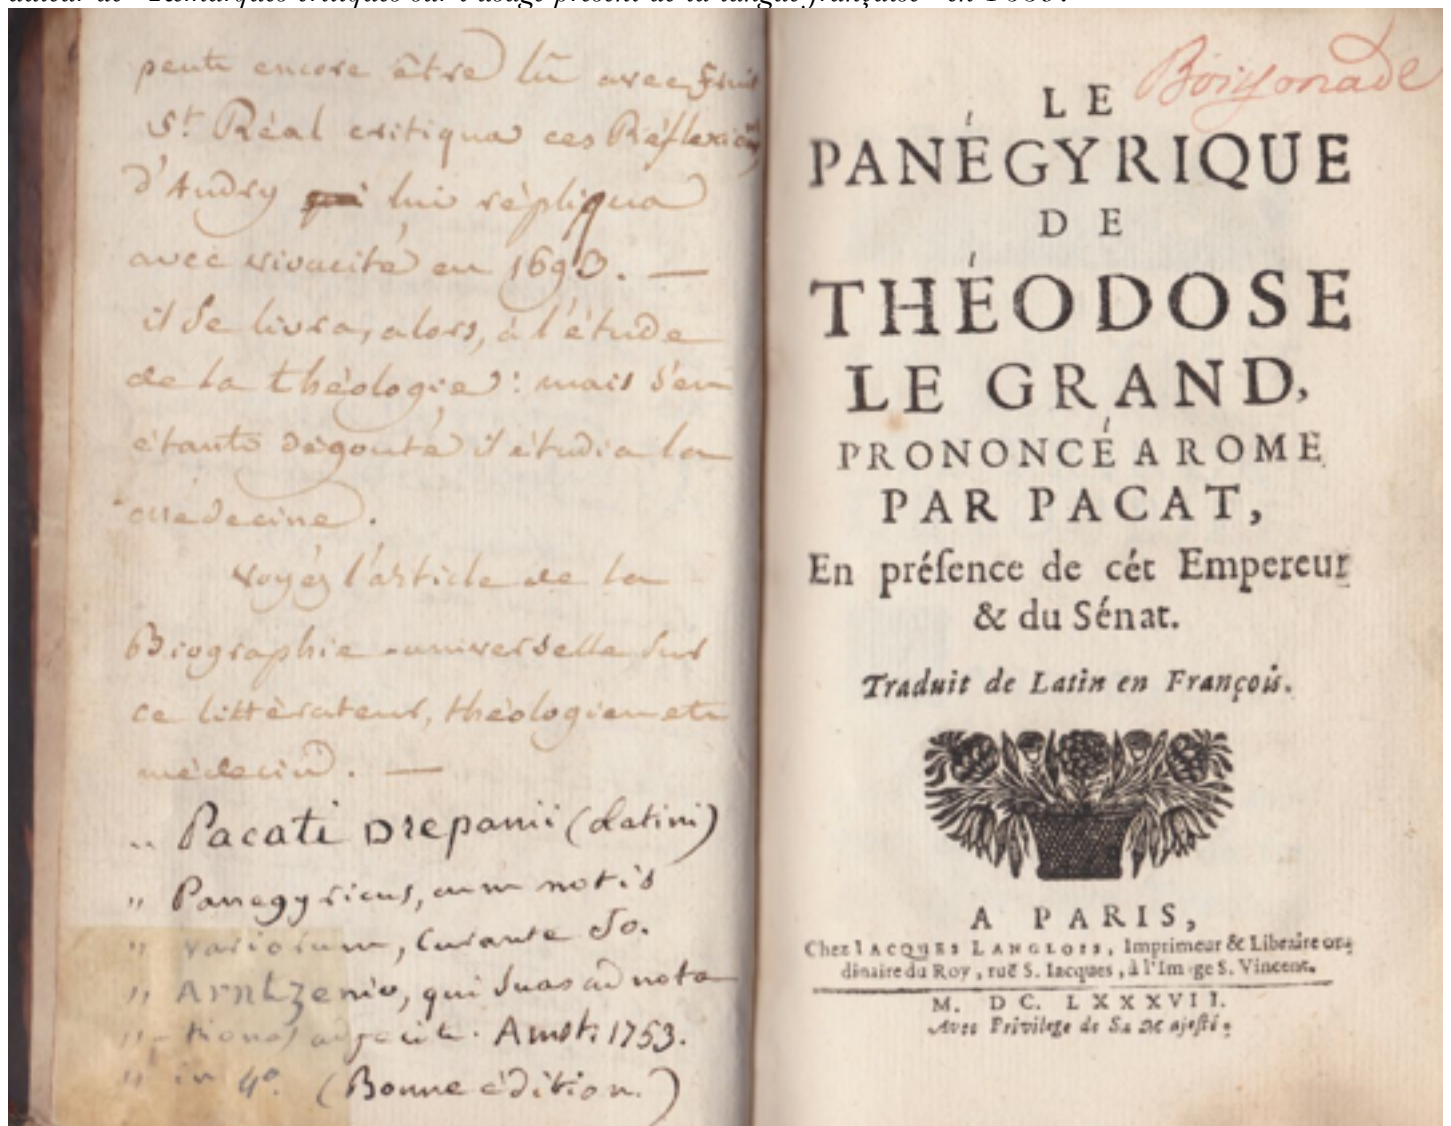 auteur de "Remarques critiques sur l'usage présent de la langue française" en 1689.
peut encore être lu avec fruit
St. Réal critiqua ces Réflexions
d'Andry lui répliqua
avec vivacité en 1693. —
il se livra, alors, à l'étude
de la théologie : mais s'en
étant dégouté il étudia la
médecine.
voyés l'article de la
Biographie universelle sur
ce littérateur, théologien et
médecin. —
„ Pacati Drepanii (Latini)
„ Panegyricus, cum notis
„ variorum, curante Jo.
„ Arntzenio, qui suas adnota
„ - tiones adjecit. Amst. 1753.
„ in 4º. (Bonne édition.)
Boissonade
LE
PANÉGYRIQUE
DE
THÉODOSE
LE GRAND,
PRONONCÉ A ROME
PAR PACAT,
En préſence de cét Empereur
& du Sénat.
Traduit de Latin en François.
A PARIS,
Chez IACQUES LANGLOIS, Imprimeur & Libraire or-
dinaire du Roy, ruë S. Iacques, à l'Image S. Vincent.
M. DC. LXXXVII.
Avec Privilege de Sa Majeſté.